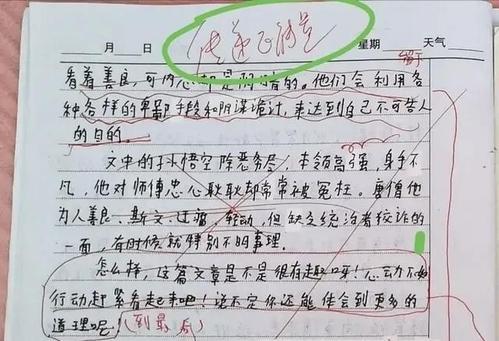 传递正能量
月 日 星期 天气
看着善良,可内心却是阴暗的。他们会利用各
种各样的卑鄙手段和阴谋诡计,来达到自己不可告人
的目的。
文中的孙悟空除恶务尽,本领高强,身手不
凡,他对师傅忠心耿耿却常常被冤枉。唐僧他
为人善良、斯文、过 轻动,但缺乏统治者狡诈的
一面,有时候就特别不明事理。
怎么样,这篇文章是不是很有趣呀!心动不如
行动赶紧看起来吧!说不定你还能体会到更多的
道理呢(到最后)